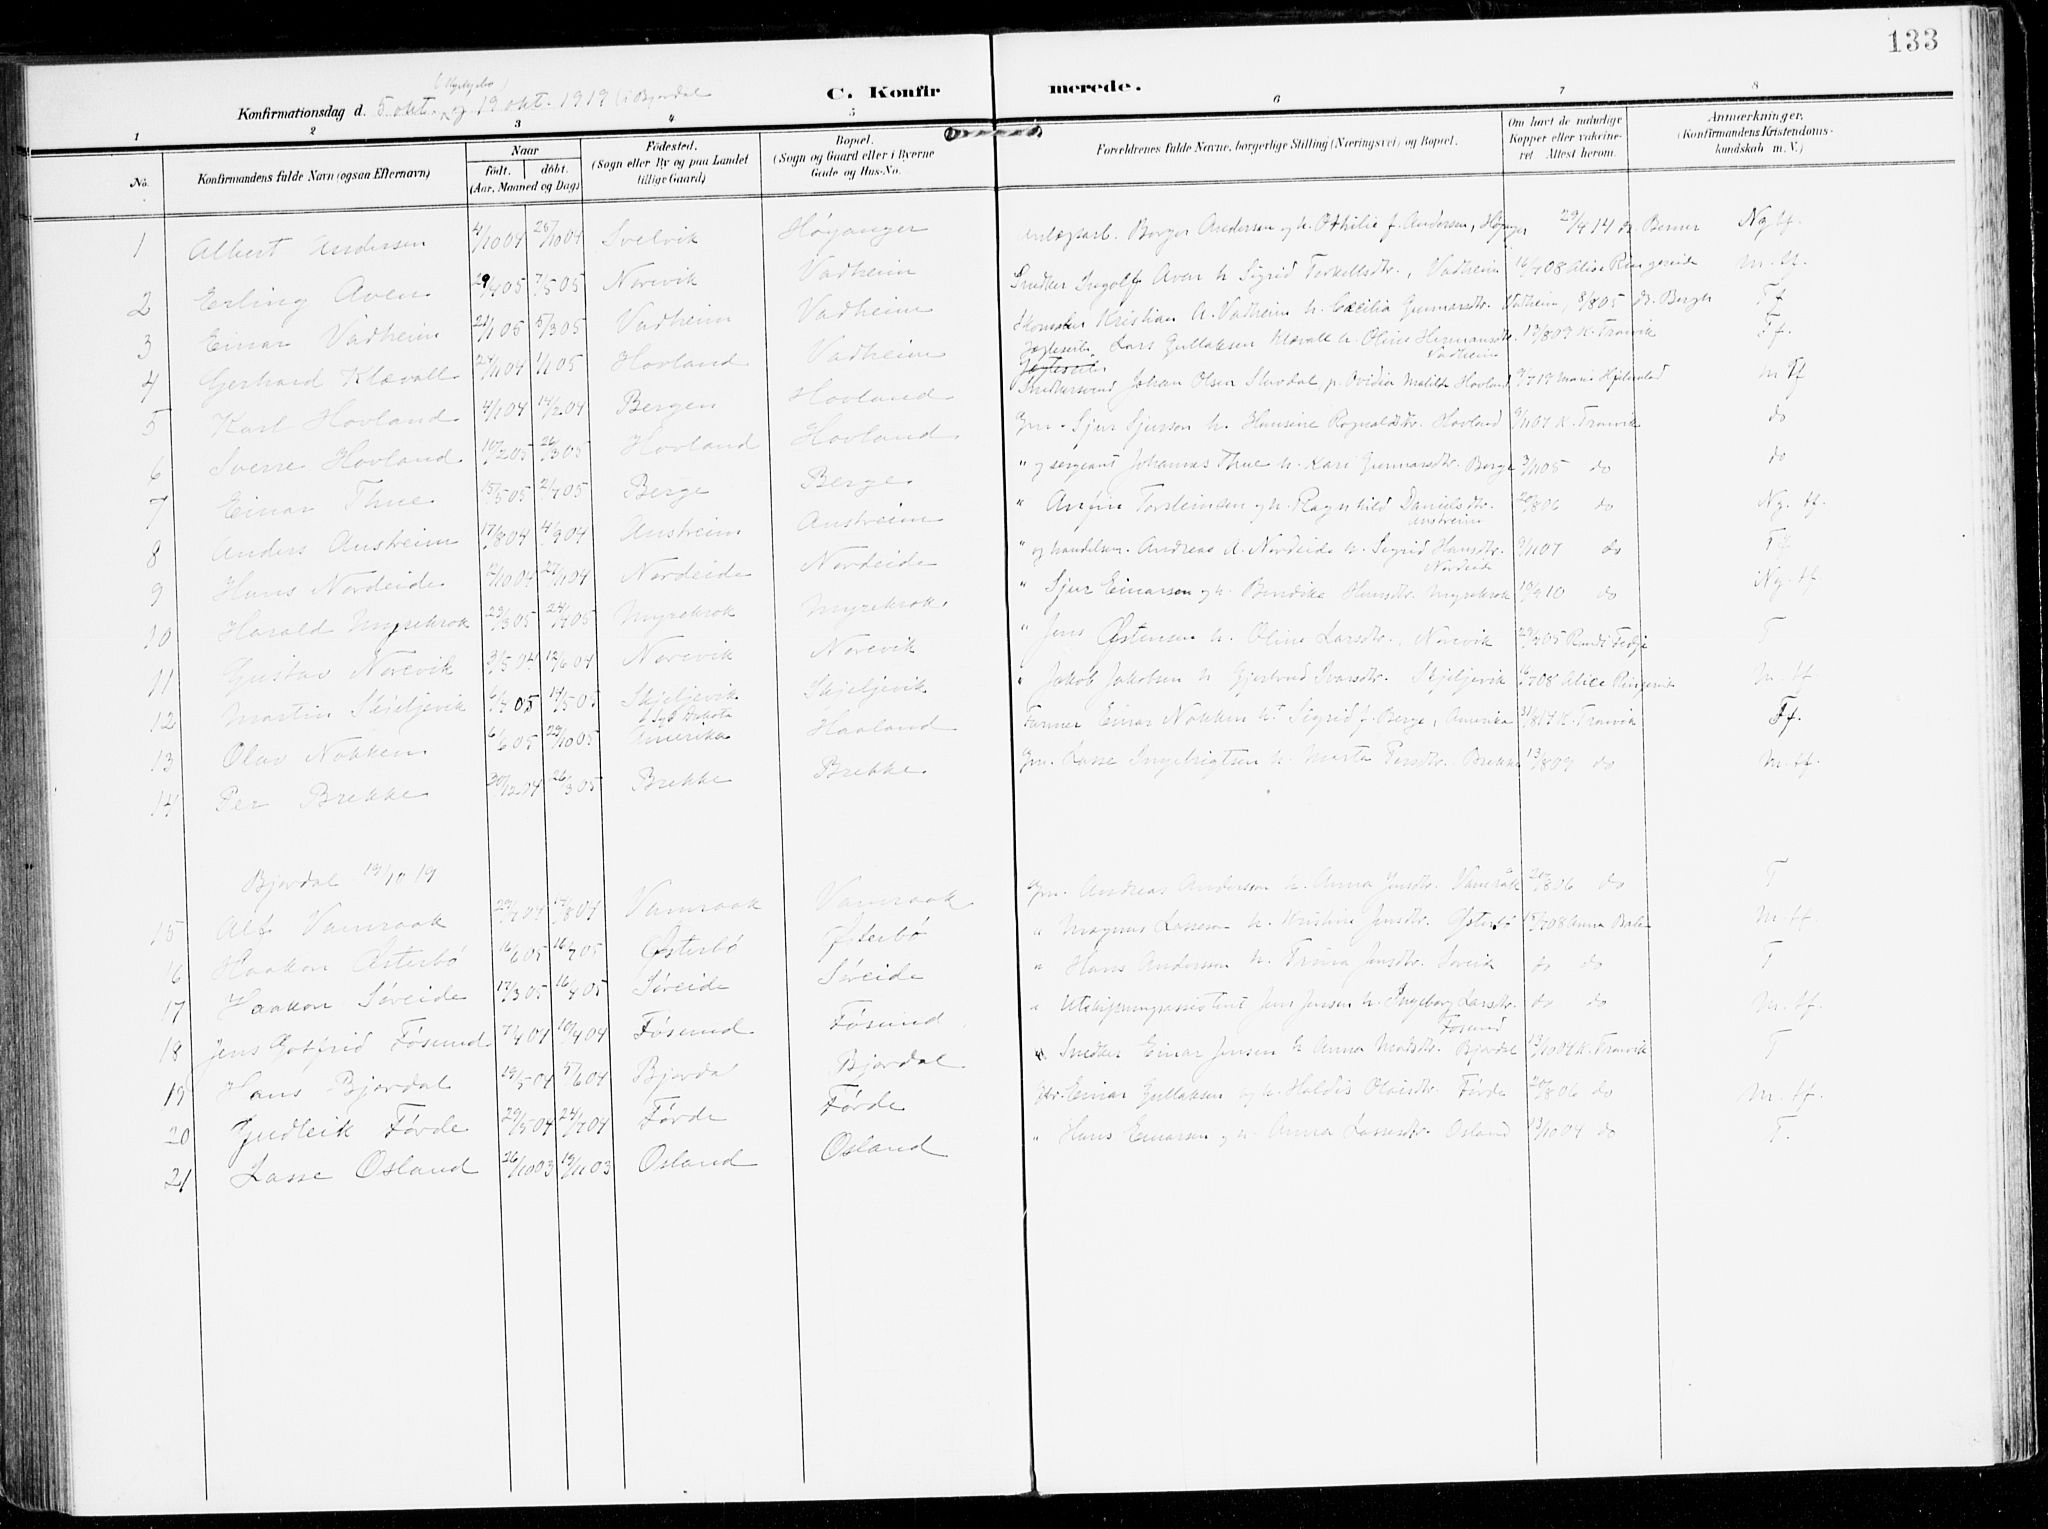 133
Konfirmationsdag d. 5 okt. og 19 okt. 1919 (i Bjordal
C. Konfirmerede.
1 2 3 4 5 6 7 8
No. Konfirmandens fulde Navn (ogsaa Efternavn) Naar födt. döbt. (Aar, Maaned og Dag) Födested. (Sogn eller By og paa Landet tillige Gaard) Bopel. (Sogn og Gaard eller i Byerne Gade og Hus-No. Forældrenes fulde Navne, borgerlige Stilling (Næringsvei) og Bopel. Om havt de naturlige Kopper eller vakcineret. Attest herom. Anmærkninger. (Konfirmandens Kristendomskundskab m. V.)
1 Albert Andersen 4/10 04 25/10 04 Svelvik Høyanger Borger Andersen og h. Othilie f. Andersen, 29/4 14 dr. Berner Ng. tf.
2 Erling Aven 29/4 05 7/5 05 Norevik Vadheim Snedker Ingolf Aven h. Sigrid Torkelsdtr., Vadheim 16/7 08 Alice Ringereide M. tf.
3 Einar Vadheim 21/1 05 5/3 05 Vadheim Vadheim Kristian A. Vadheim h. Cecilia Gunnarsdtr. Vadheim, 8/8 05 dr. Berger Tf
4 Gerhard Klævold 24/11 04 1/1 05 Hovland Vadheim Lars Gullaksen Klævold h. Oline Hermansdtr. Vadheim 13/8 07 K. Tranvik Tf.
5 Karl Hovland 4/1 04 14/2 04 Bergen Hovland Snedkersvend Johan Olsen p. Ovidia Matilde Hovland 9/7 19 Marie Hjelmelad M Tf
6 Sverre Hovland 10/2 05 26/3 05 Hovland Hovland Gm. Sjur Sjursson h. Hansine Ragnaldsdtr. Hovland 9/11 07 K. Tranvik do
7 Einar Thue 15/5 05 2/7 05 Berge Berge " og sergeant Johannes Thue h. Kari Gunnarsdtr. Berge 3/11 05 do do
8 Anders Austreim 17/8 04 4/9 04 Austreim Austreim " Torsteinsen og h. Ragnhild Danielsdtr. Austreim 20/8 06 do Ng. tf.
9 Hans Nordeide 12/10 04 27/11 04 Nordeide Nordeide " og handelsm. Andreas A. Nordeide h. Sigrid Hansdtr. Nordeide 9/11 07 do Tf.
10 Harald Myrekrok 29/3 05 24/4 05 Myrekrok Myrekrok " Sjur Einarsen og h. Bendike Hansdtr. Myrekrok 10/9 10 do Ng. tf
11 Gustav Norevik 3/5 04 12/6 04 Norevik Norevik " Jens Østensen h. Oline Larsdtr., Norevik 29/7 05 T
12 Martin Skjeljevik 6/4 05 14/5 05 Skjeljevik Skjeljevik " Jakob Jakobsen h. Gjertrud Ivarsdtr. Skjeljevik 16/7 08 Alice Ringereide M. tf
13 Olav Nokken 6/6 05 29/10 05 Syd Dakota Amerika Hovland Farmer Einar Nokken h. Sigrid f. Berge, Amerika 31/8 17 K. Tranvik Tf.
14 Per Brekke 30/12 04 26/3 05 Brekke Brekke Gm. Lasse Ingebrigtsen h. Marta Persdtr. Brekke 13/8 07 do M. tf.
Bjordal 19/10 19
15 Alf Vamraak 29/7 04 14/8 04 Vamraak Vamraak Gm. Andreas Anderssen h. Anna Jensdtr. Vamråk 20/8 06 do T
16 Haakon Østerbø 16/6 05 16/7 05 Østerbø Østerbø " Magnus Lassesson h. Kristine Jensdtr. Østerbø 15/7 08 Anna M. tf.
17 Haakon Søreide 17/3 05 16/4 05 Søreide Søreide " Hans Andersson h. Trina Jensdtr. do do T
18 Jens Gotfrid Føsund 7/4 04 10/4 04 Føsund Føsund " Utskiftningsassistent Jens Jensen h. Ingeborg Larsdtr. Føsund do do M. tf.
19 Hans Bjordal 19/5 04 5/6 04 Bjordal Bjordal Snedker Einar Jensen h Anna Madsdtr. Bjordal 13/10 04 K. Tranvik T
20 Gudleik Førde 29/5 04 24/7 04 Førde Førde Gbr. Einar Gullaksen og h. Haldis Olaisdtr. Førde 20/8 06 do M. tf.
21 Lasse Osland 26/10 03 19/11 03 Osland Osland " Hans Einarsen og h. Anna Lassesdtr. Osland 13/10 04 do T.